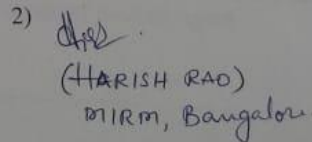 2)
(HARISH RAO)
MIRM, Bangalore